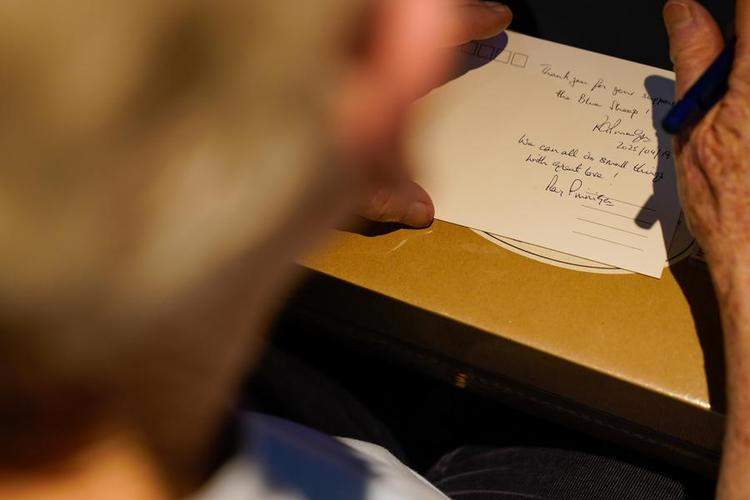 Thank you for your support
the Blue Sheep !
2025/04/19
We can all do small things
with great love !